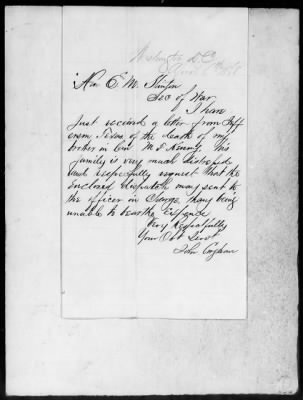 Washington D.C.
Hon E. M. Stanton
Sec of War
I have
Just received a letter from Jeff
erson Texas of the death of my
brother in law M. D. His
family is very much distressed
and respectfully request that the
enclosed dispatch may sent to
the officer in Charge, they being
unable to bear the
Very Respectfully
Your Obt Servt
John